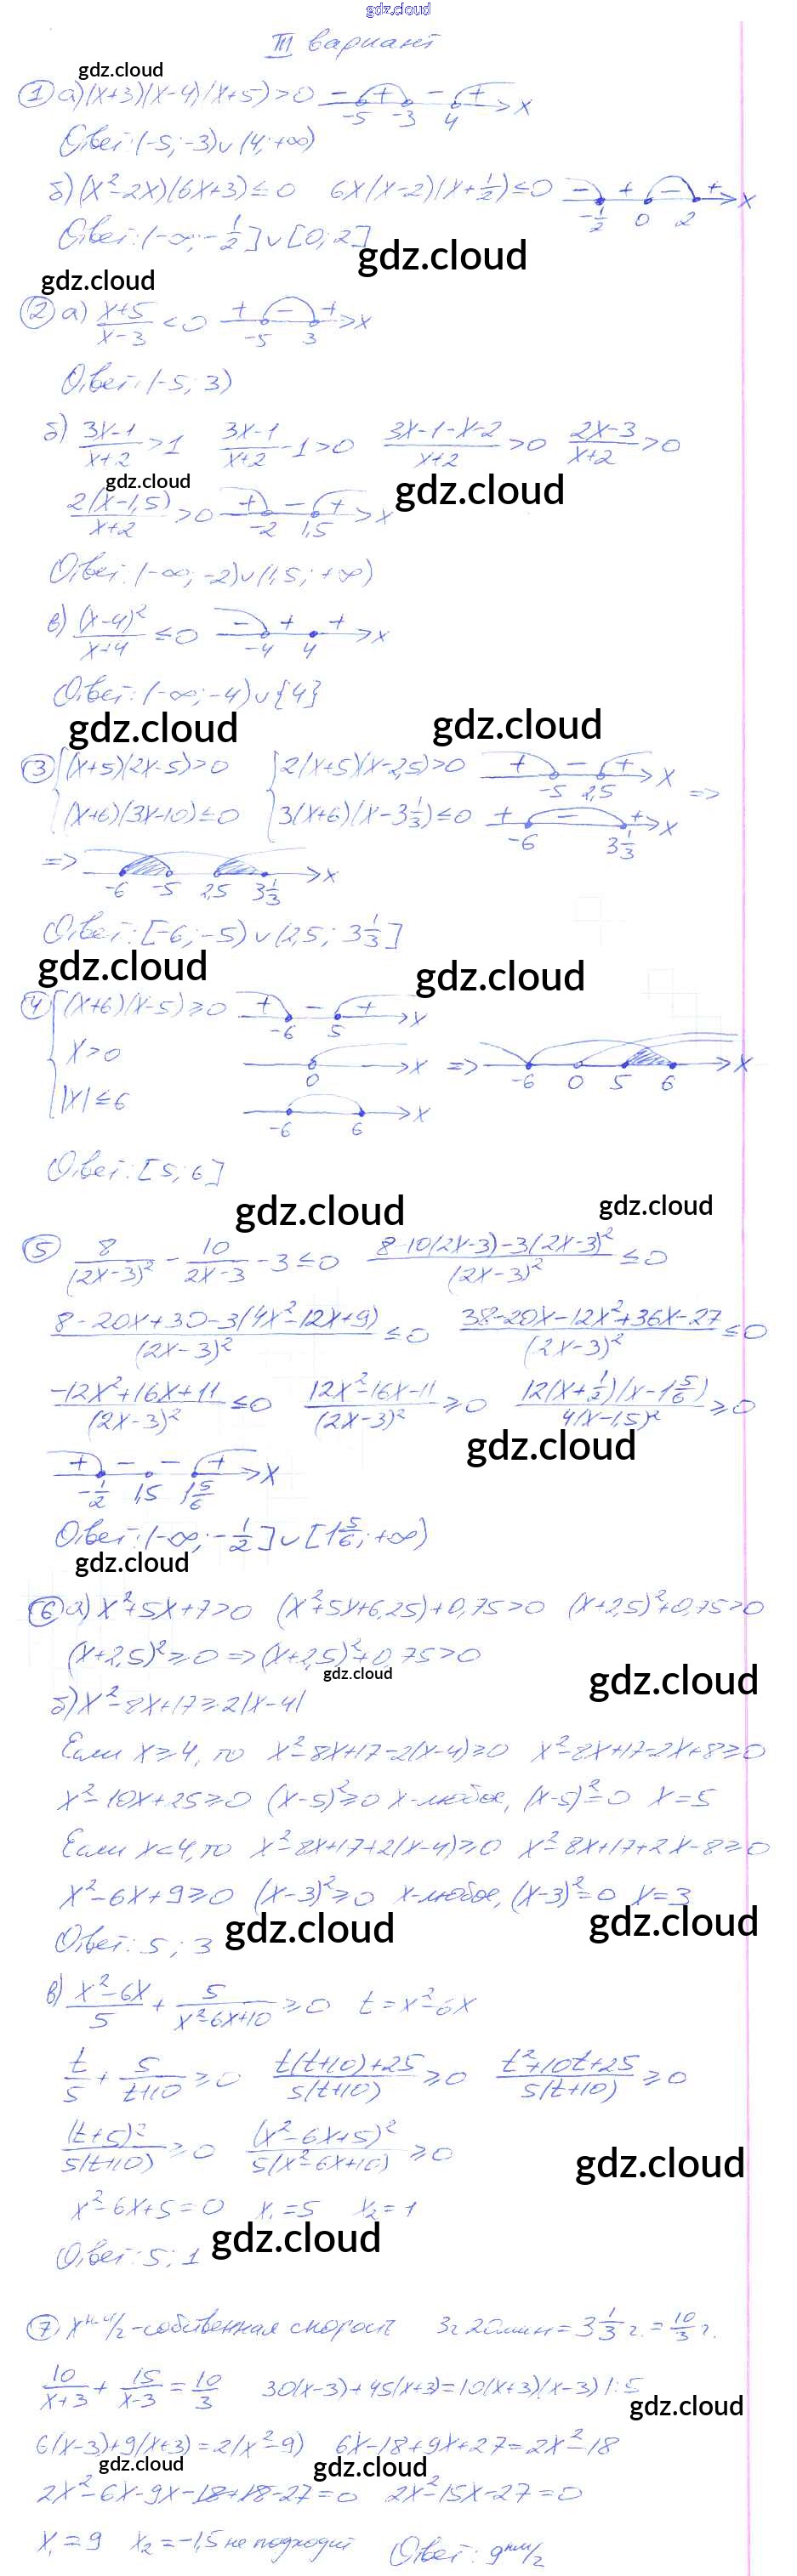 gdz.cloud
III вариант
gdz.cloud
① а) (x+3)(x-4)(x+5)>0 − + − + x
-5 -3 4
Ответ: (-5; -3)∪(4; +∞)
б) (x²-2x)(6x+3)≤0 6x(x-2)(x+1/2)≤0 − + − + x
-1/2 0 2
Ответ: (-∞; -1/2]∪[0; 2]
gdz.cloud
gdz.cloud
② а) (x+5)/(x-3) <0 + − + x
-5 3
Ответ: (-5; 3)
б) (3x-1)/(x+2) >1 (3x-1)/(x+2) -1>0 (3x-1-x-2)/(x+2) >0 (2x-3)/(x+2) >0
gdz.cloud gdz.cloud
2(x-1,5)/(x+2) >0 + − + x
-2 1,5
Ответ: (-∞; -2)∪(1,5; +∞)
в) (x-4)²/(x+4) ≤0 − + + x
-4 4
Ответ: (-∞; -4)∪{4}
gdz.cloud gdz.cloud
③ { (x+5)(2x-5)>0 { 2(x+5)(x-2,5)>0 + − + x =>
-5 2,5
(x+6)(3x-10)≤0 3(x+6)(x-3 1/3)≤0 + − + x
-6 3 1/3
=> x
-6 -5 2,5 3 1/3
Ответ: [-6; -5)∪(2,5; 3 1/3]
gdz.cloud gdz.cloud
④ { (x+6)(x-5)≥0 + − + x
-6 5
x>0 x => x
0 -6 0 5 6
|x|≤6 x
-6 6
Ответ: [5; 6]
gdz.cloud gdz.cloud
⑤ 8/(2x-3)² - 10/(2x-3) -3≤0 (8-10(2x-3)-3(2x-3)²)/(2x-3)² ≤0
(8-20x+30-3(4x²-12x+9))/(2x-3)² ≤0 (38-20x-12x²+36x-27)/(2x-3)² ≤0
(-12x²+16x+11)/(2x-3)² ≤0 (12x²-16x-11)/(2x-3)² ≥0 12(x+1/2)(x-1 5/6)/4(x-1,5)² ≥0
gdz.cloud
+ − − + x
-1/2 1,5 1 5/6
Ответ: (-∞; -1/2]∪[1 5/6; +∞)
gdz.cloud
⑥ а) x²+5x+7>0 (x²+5x+6,25)+0,75>0 (x+2,5)²+0,75>0
(x+2,5)²≥0 => (x+2,5)²+0,75>0
gdz.cloud gdz.cloud
б) x²-8x+17≥2|x-4|
Если x≥4, то x²-8x+17-2(x-4)≥0 x²-8x+17-2x+8≥0
x²-10x+25≥0 (x-5)²≥0 x-любое, (x-5)²=0 x=5
Если x<4, то x²-8x+17+2(x-4)≥0 x²-8x+17+2x-8≥0
x²-6x+9≥0 (x-3)²≥0 x-любое, (x-3)²=0 x=3
Ответ: 5; 3
gdz.cloud gdz.cloud
в) (x²-6x)/5 + 5/(x²-6x+10) ≥0 t=x²-6x
t/5 + 5/(t+10) ≥0 (t(t+10)+25)/5(t+10) ≥0 (t²+10t+25)/5(t+10) ≥0
(t+5)²/5(t+10) ≥0 (x²-6x+5)²/5(x²-6x+10) ≥0
gdz.cloud
x²-6x+5=0 x₁=5 x₂=1
gdz.cloud
Ответ: 5; 1
⑦ x км/ч - собственная скорость 3ч 20мин = 3 1/3 ч. = 10/3 ч.
10/(x+3) + 15/(x-3) = 10/3 30(x-3)+45(x+3)=10(x+3)(x-3) |:5
gdz.cloud
6(x-3)+9(x+3)=2(x²-9) 6x-18+9x+27=2x²-18
gdz.cloud gdz.cloud
2x²-6x-9x-18+18-27=0 2x²-15x-27=0
x₁=9 x₂=-1,5 не подходит Ответ: 9 км/ч